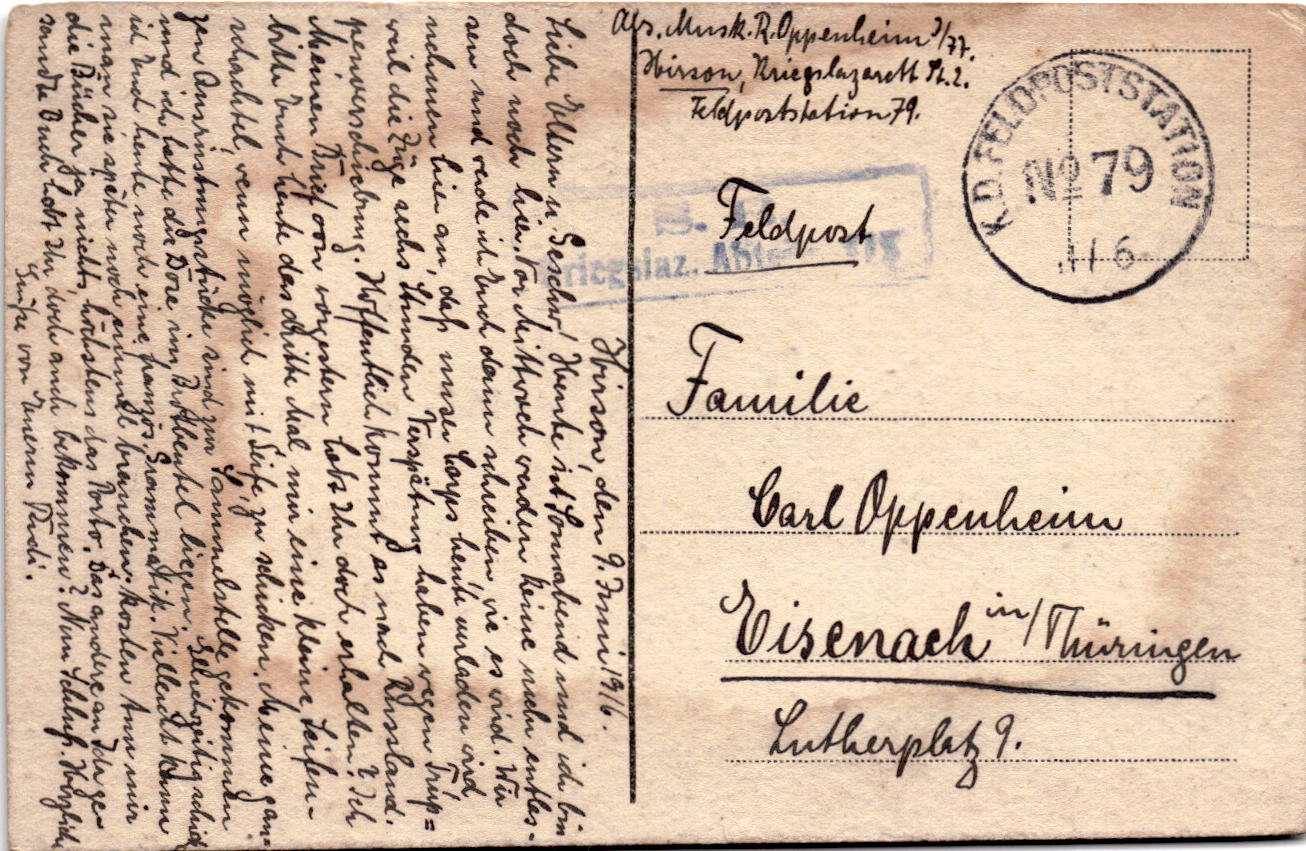 Abs. Musk. R. Oppenheim 3/77.
Hirson, Kriegslazarett St. 2.
Feldpoststation 79.
K.D. FELDPOSTSTATION
No 79
11 6
Kriegslaz. Abt.
Feldpost
Familie
Carl Oppenheim
Eisenach in/Thüringen
Lutherplatz 9.
Hirson, den 9. Juni 1916.
Liebe Eltern u. Geschw! Heute ist Sonnabend und ich bin
doch noch hier. Vor Mittwoch werden keine mehr entlas-
sen und werde ich Euch dann schreiben, wie es wird. Wir
nehmen hier an, daß unser Corps heute umladen wird,
weil die Züge sechs Stunden Verspätung haben wegen Trup=
penverschiebung. Hoffentlich kommt es nach Russland.
Meinen Brief von vorgestern habt Ihr doch erhalten? Ich
bitte Euch heute das dritte Mal, mir eine kleine Seifen-
schachtel, wenn möglich mit Seife, zu schicken. Meine gan=
zen Ausrüstungsstücke sind zur Sammelstelle gekommen
und ich hatte die Dose im Brotbeutel liegen. Gleichzeitig schicke
ich Euch heute noch eine französ. Grammatik. Vielleicht kann
man sie später noch einmal brauchen. Kosten tun mir
die Bücher ja nichts, höchstens das Porto. Das andere an Inge ge-
sandte Buch habt Ihr doch auch bekommen? Nun Schluß. Herzliche
Grüße von Eurem Rudi.